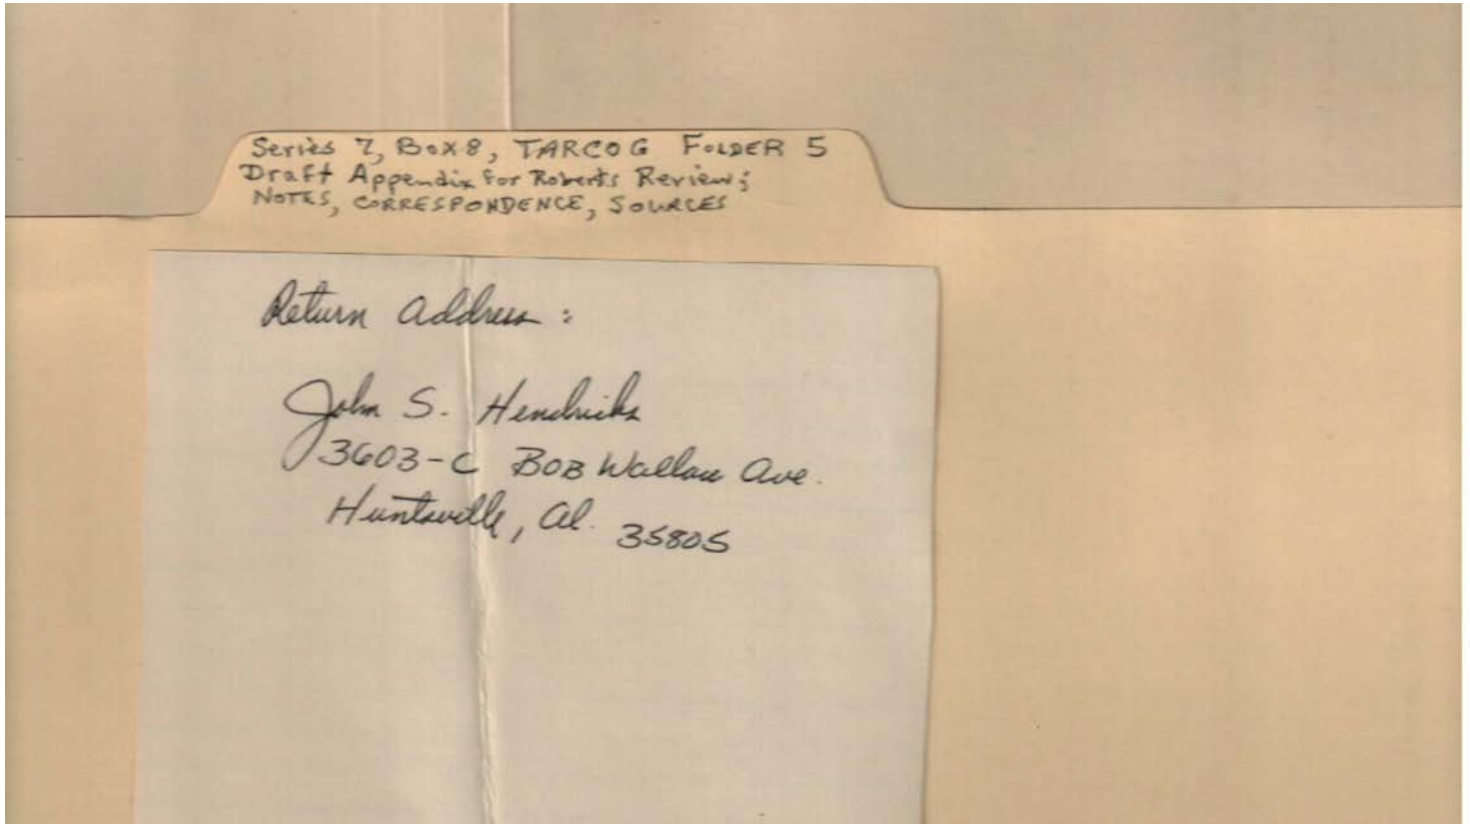 Series 7, Box 8, TARCOG FOLDER 5
Draft Appendix for Roberts Review;
NOTES, CORRESPONDENCE, SOURCES
Return Address:
John S. Hendricks
3603-C BOB Wallace Ave.
Huntsville, Al. 35805